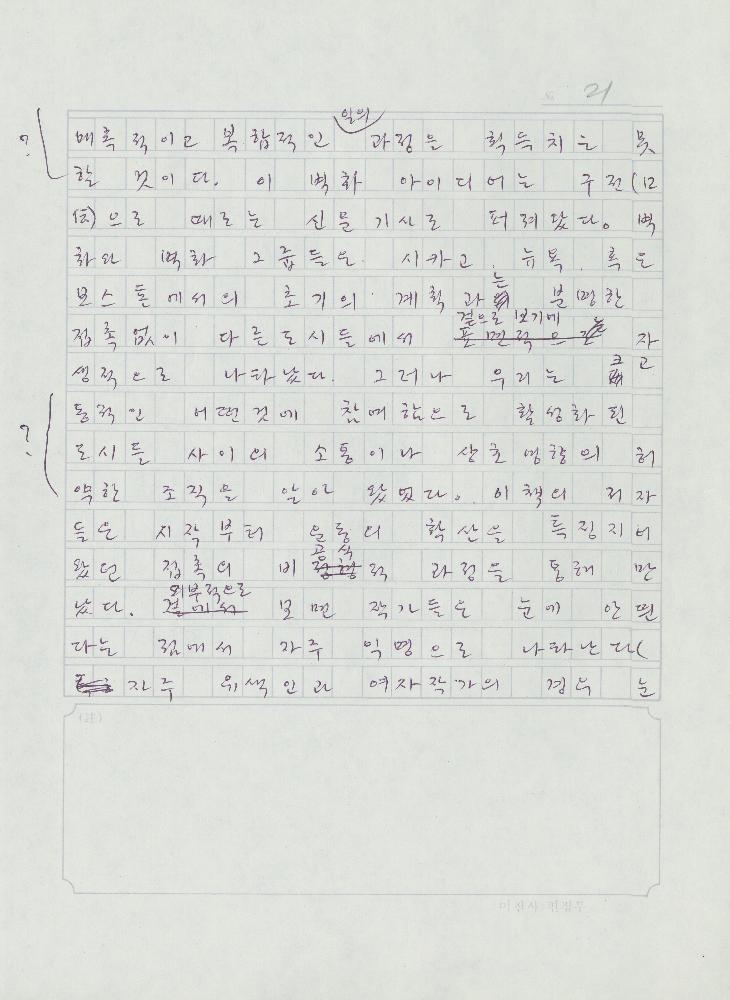 21
일의
매혹적이고 복합적인 과정은 획득치는 못
할 것이다. 이 벽화 아이디어는 구전(口
伝)으로 때로는 신문기사로 퍼져갔다. 벽
화와 벽화 그룹들은 시카고, 뉴욕, 혹은
보스톤에서의 초기의 계획과는 분명한
겉으로 보기에
접촉없이 다른도시들에서 자
생적으로 나타났다. 그러나 우리는 크고
동적인 어떤것에 참여함으로 활성화된
도시들 사이의 소통이나 상호영향의 허
약한 조직을 알아 왔었다. 이책의 저자
들은 시작부터 운동의 확산을 특징지어
공식
왔던 접촉의 비 적 과정을 통해 만
외부적으로
났다. 보면 작가들은 눈에 안띈
다는 점에서 자주 익명으로 나타난다(
자주 유색인과 여자작가의 경우 눈
(註)
미진사 편집부
?
?